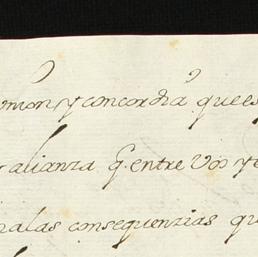 union y concordia que es
alianza q̃ entre Vos y e
malas consequenzias qu